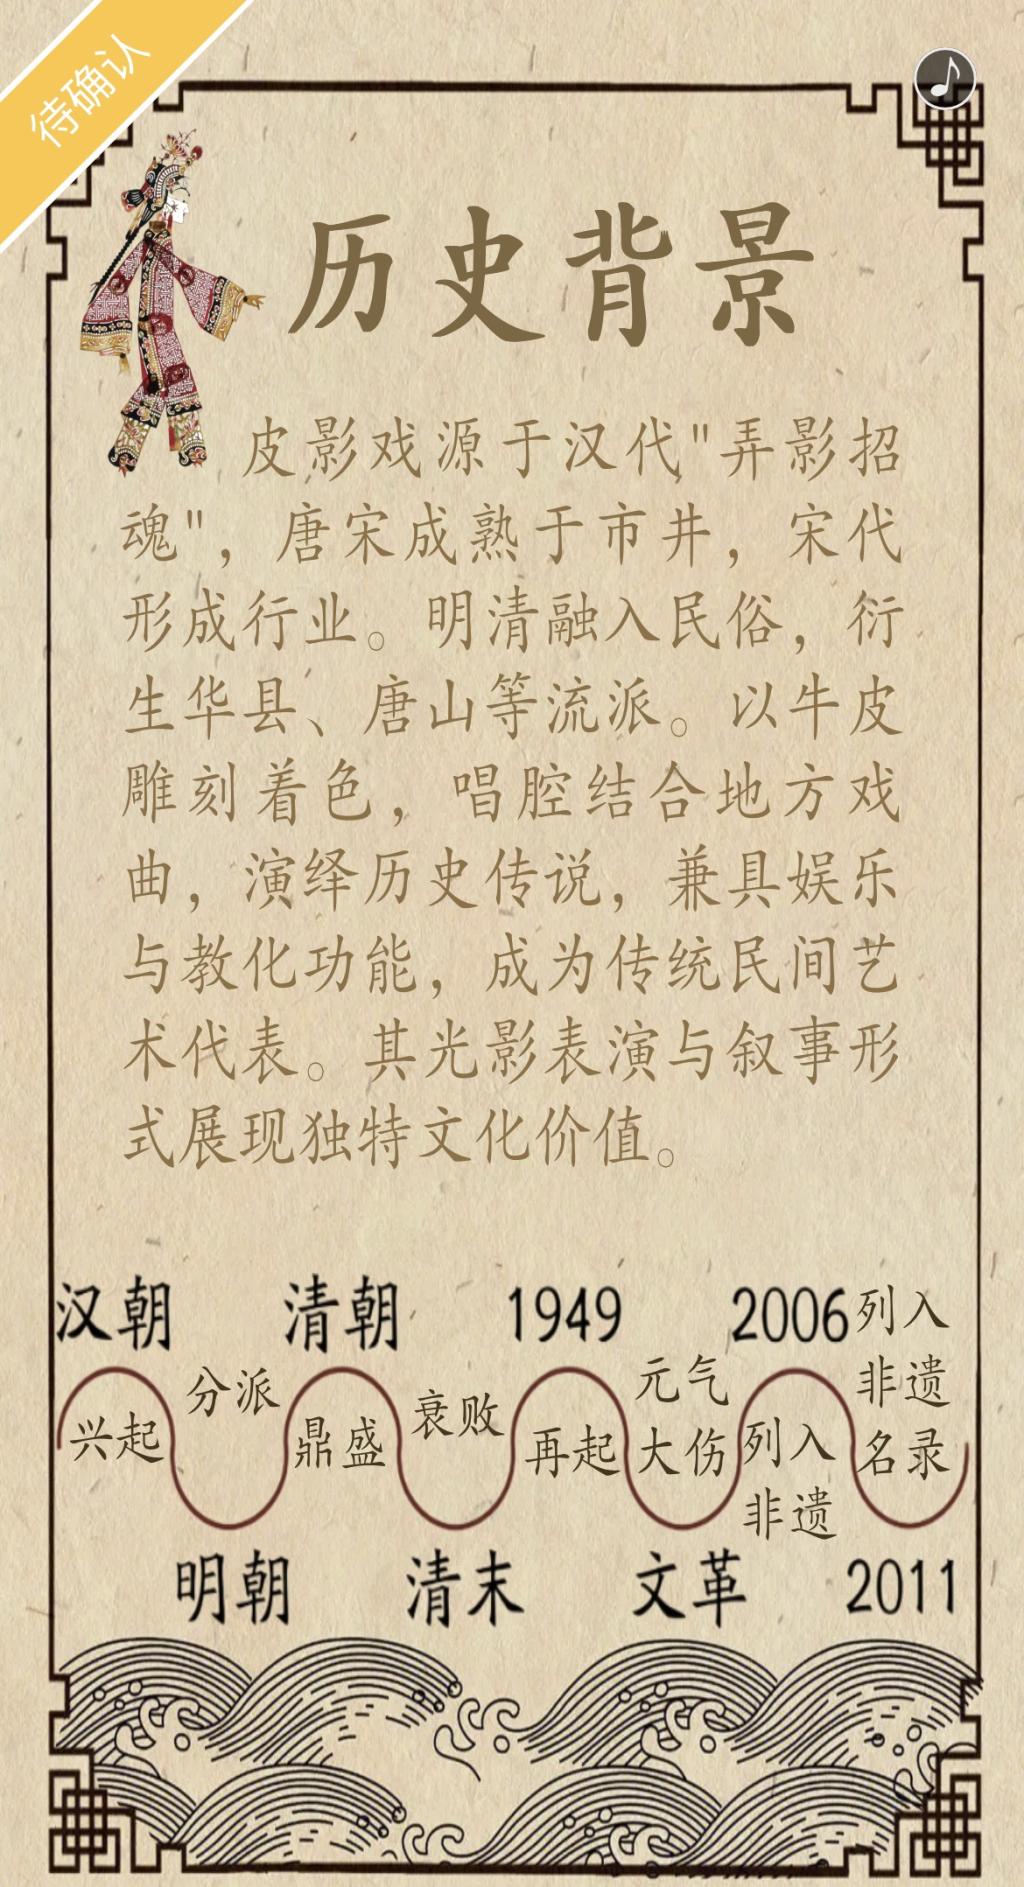 待确认
历史背景
皮影戏源于汉代"弄影招
魂"，唐宋成熟于市井，宋代
形成行业。明清融入民俗，衍
生华县、唐山等流派。以牛皮
雕刻着色，唱腔结合地方戏
曲，演绎历史传说，兼具娱乐
与教化功能，成为传统民间艺
术代表。其光影表演与叙事形
式展现独特文化价值。
汉朝
兴起
分派
明朝
清朝
鼎盛
衰败
清末
1949
再起
元气
大伤
文革
2006
列入
非遗
列入
非遗
名录
2011